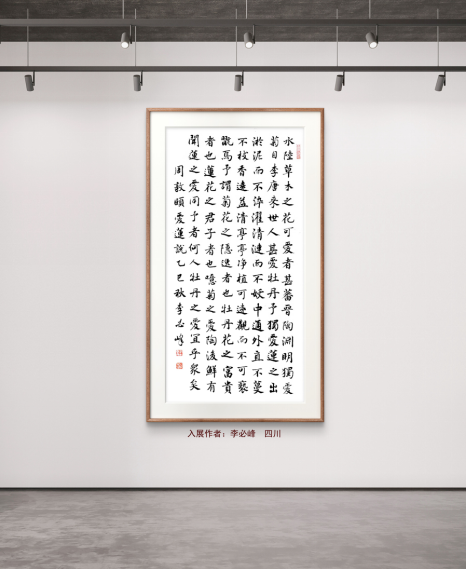 水陸草木之花可愛者甚蕃晉陶淵明獨愛
菊自李唐来世人甚愛牡丹予獨愛蓮之出
淤泥而不染濯清漣而不妖中通外直不蔓
不枝香遠益清亭亭净植可遠觀而不可褻
翫焉予謂菊花之隐逸者也牡丹花之富貴
者也蓮花之君子者也噫菊之愛陶後鮮有
聞蓮之愛同予者何人牡丹之愛宜乎衆矣
周敦頤愛蓮說乙巳秋李必峰
入展作者：李必峰 四川